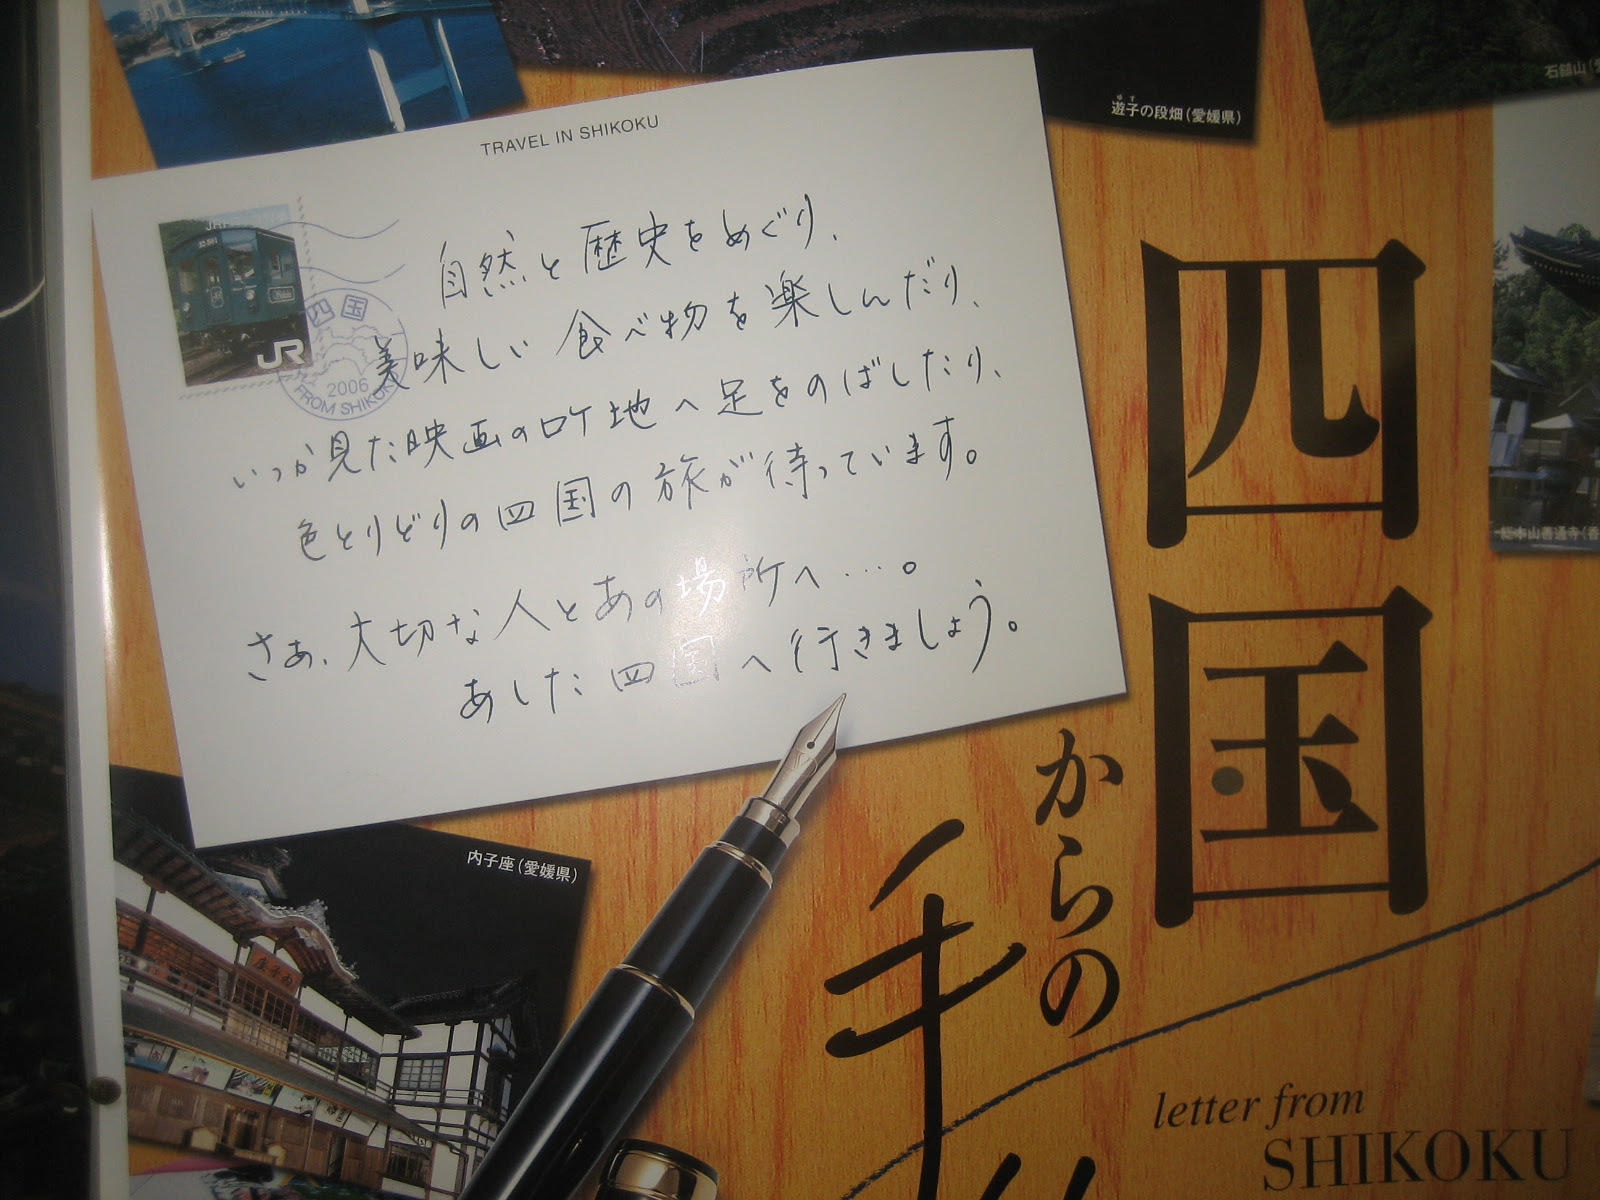 遊子の段畑(愛媛県)
ゆす
石鎚山(
TRAVEL IN SHIKOKU
JR
四国
2006
FROM SHIKOKU
自然と歴史をめぐり、
美味しい食べ物を楽しんだり、
いつか見た映画のロケ地へ足をのばしたり、
色とりどりの四国の旅が待っています。
さあ、大切な人とあの場所へ…。
あした四国へ行きましょう。
総本山善通寺(香
四国
からの
手
letter from
SHIKOKU
内子座(愛媛県)
内子座